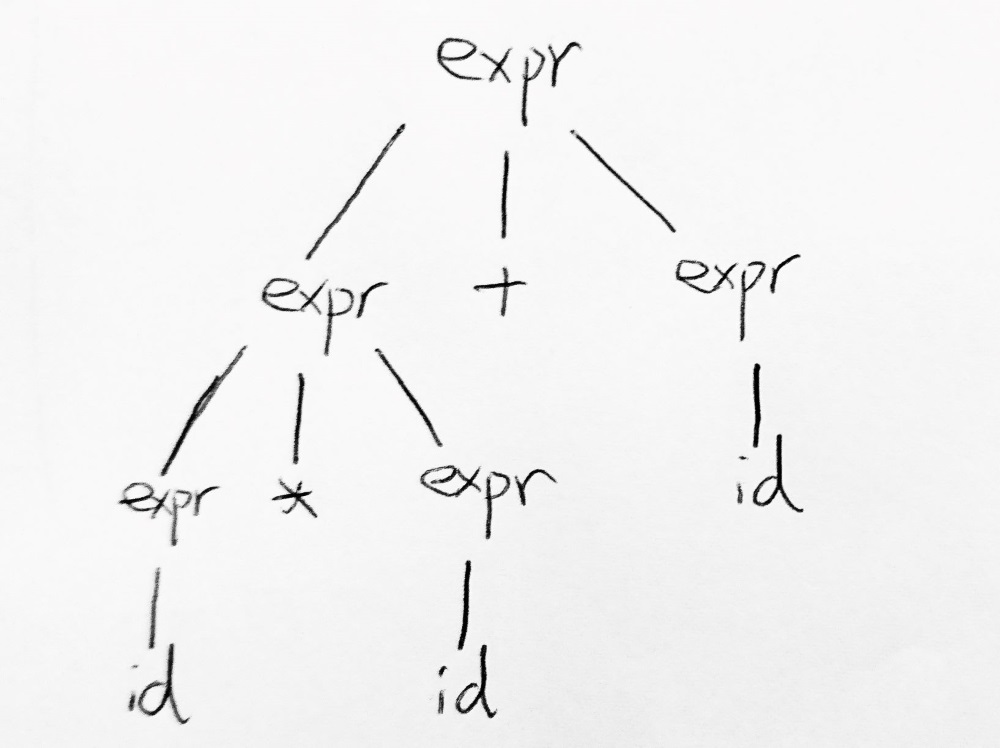 expr
expr + expr
expr * expr id
id id